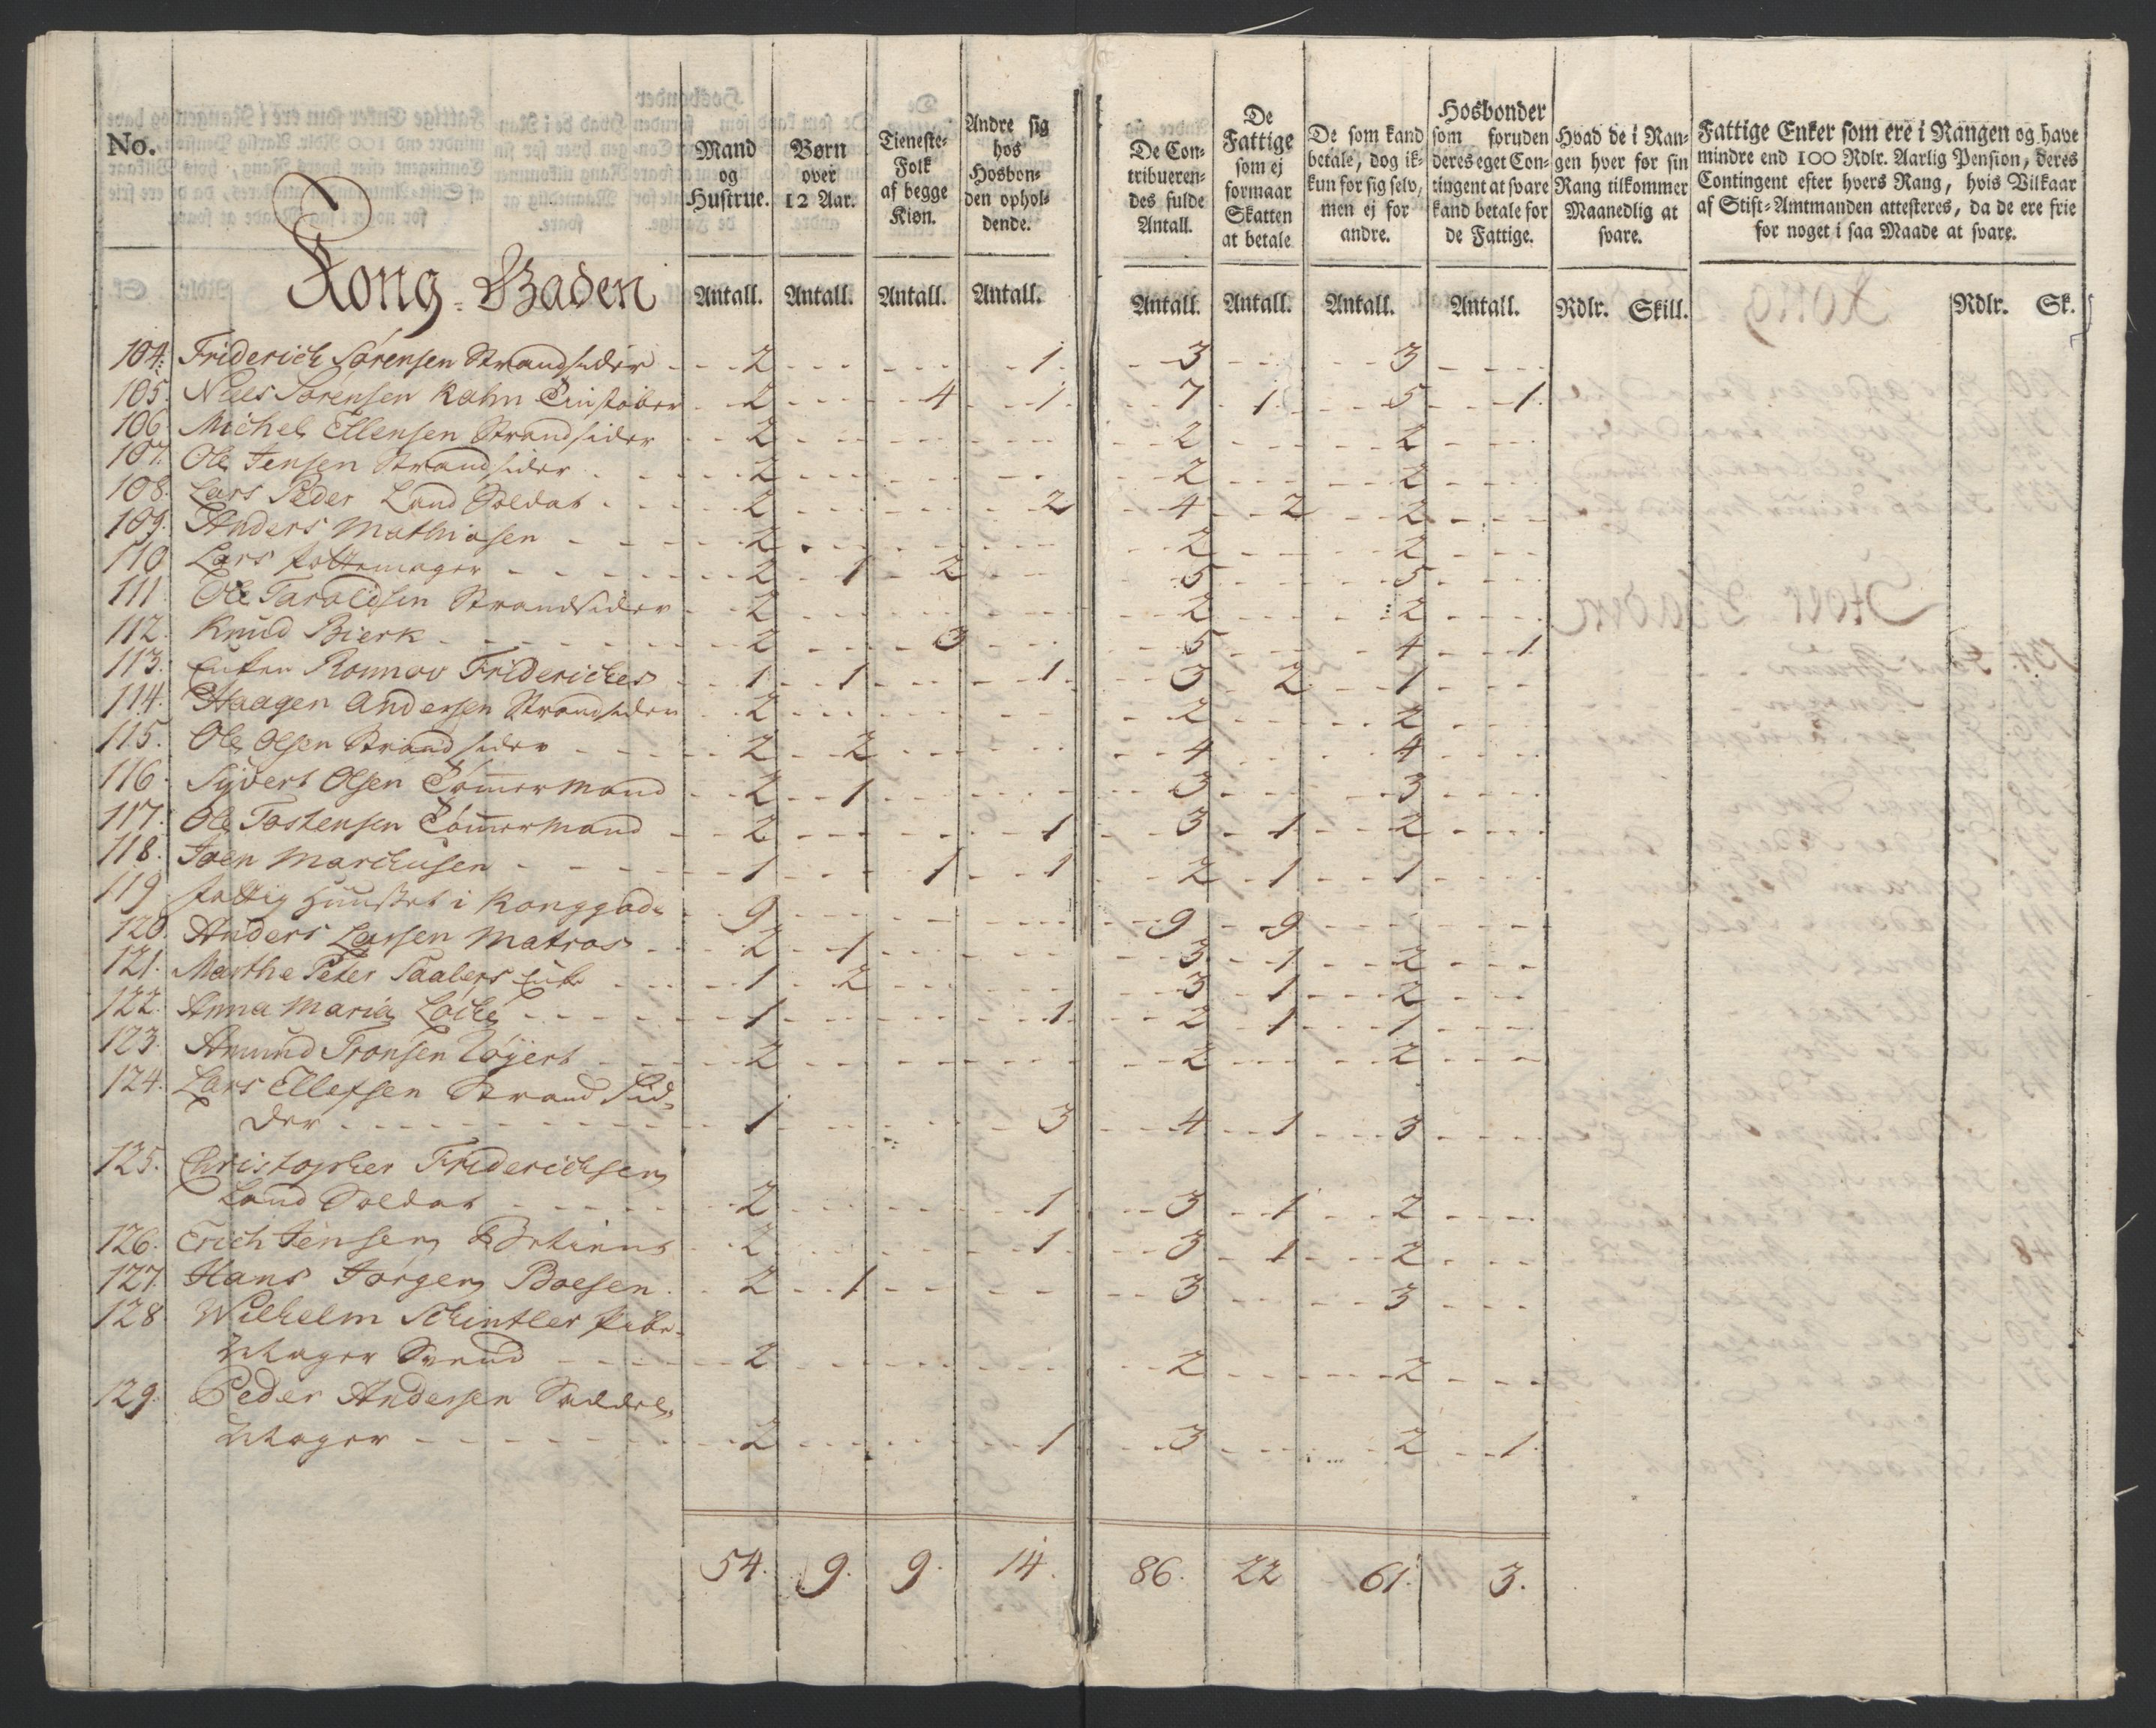 No.
Mand og Hustrue.
Børn over 12 Aar.
Tieneste-Folk af begge Kiøn.
Andre sig hos Hosbonden opholdende.
De Contribuerendes fulde Antall.
De Fattige som ej formaar Skatten at betale
De som kand betale, dog ikkun for sig selv, men ej for andre.
Hosbonder som foruden deres eget Contingent at svare kand betale for de Fattige.
Hvad de i Rangen hver for sin Rang tilkommer Maanedlig at svare.
Fattige Enker som ere i Rangen og have mindre end 100 Rdlr. Aarlig Pension, deres Contingent efter hvers Rang, hvis Vilkaar af Stift-Amtmanden attesteres, da de ere frie for noget i saa Maade at svare.
Kong-Gaden
Antall. Antall. Antall. Antall. Antall. Antall. Antall. Antall. Rdlr. Skill. Rdlr. Sk.
104. Friderich Sørensen Strandsider 2 1 3 3
105. Niels Sørensen Kahn 2 4 1 7 1 5 1
106. Michel Ellensen Strandsider 2 2 2
107. Ole Jensen Strandsider 2 2 2
108. Lars Peder Land Soldat 2 2 4 2 2
109. Anders Mathiasen 2 2 2
110 Lars Pottemager 2 1 2 5 5
111 Ole Taraldsen Strandsider 2 2 2
112. Knud Bierk 2 3 5 4 1
113. Enken Ronnov Friderichs 1 1 1 3 2 1
114. Haagen Andersen Strandsider 2 2 2
115. Ole Olsen Strandsider 2 2 4 4
116 Syvert Olsen Tømmermand 2 1 3 3
117. Ole Tostensen Tømmermand 2 1 3 1 2
118. Joen Marchusen 1 1 1 2 1 1
119 Fattig Huuset i Konggade 9 9 9
120. Anders Larsen Matros 2 1 3 1 2
121. Marthe Peter Taalers Enke 1 2 3 1 2
122. Anna Maria 1 1 2 1 1
123. Amund Tronsen 2 2 2
124. Lars Ellefsen Strand Sid-
der 1 3 4 1 3
125. Christopher Friderichsen
Land Soldat 2 1 3 1 2
126. Erich Jensen 2 1 3 1 2
127. Hans Jørgen Boesen 2 1 3 3
128 Wilhelm Schintler
Mager Svend 2 2 2
129. Peder Andersen Saddel-
Mager 2 1 3 2 1
54. 9. 9. 14. 86. 22 61. 3.